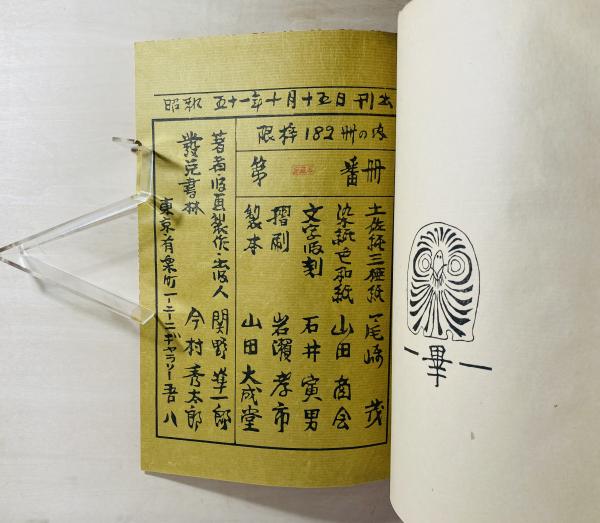 昭和 五十一年十月十五日 刊出
限梓182冊の内
第 番冊
土佐紙三椏紙 尾崎 茂
染紙色和紙 山田商会
文字版刻 石井寅男
摺刷 岩瀬孝市
製本 山田大成堂
著者版画製作・出版人 関野準一郎
發兌書林 今村秀太郎
東京・有楽町一ー二ー二ギャラリー吾八
一畢一